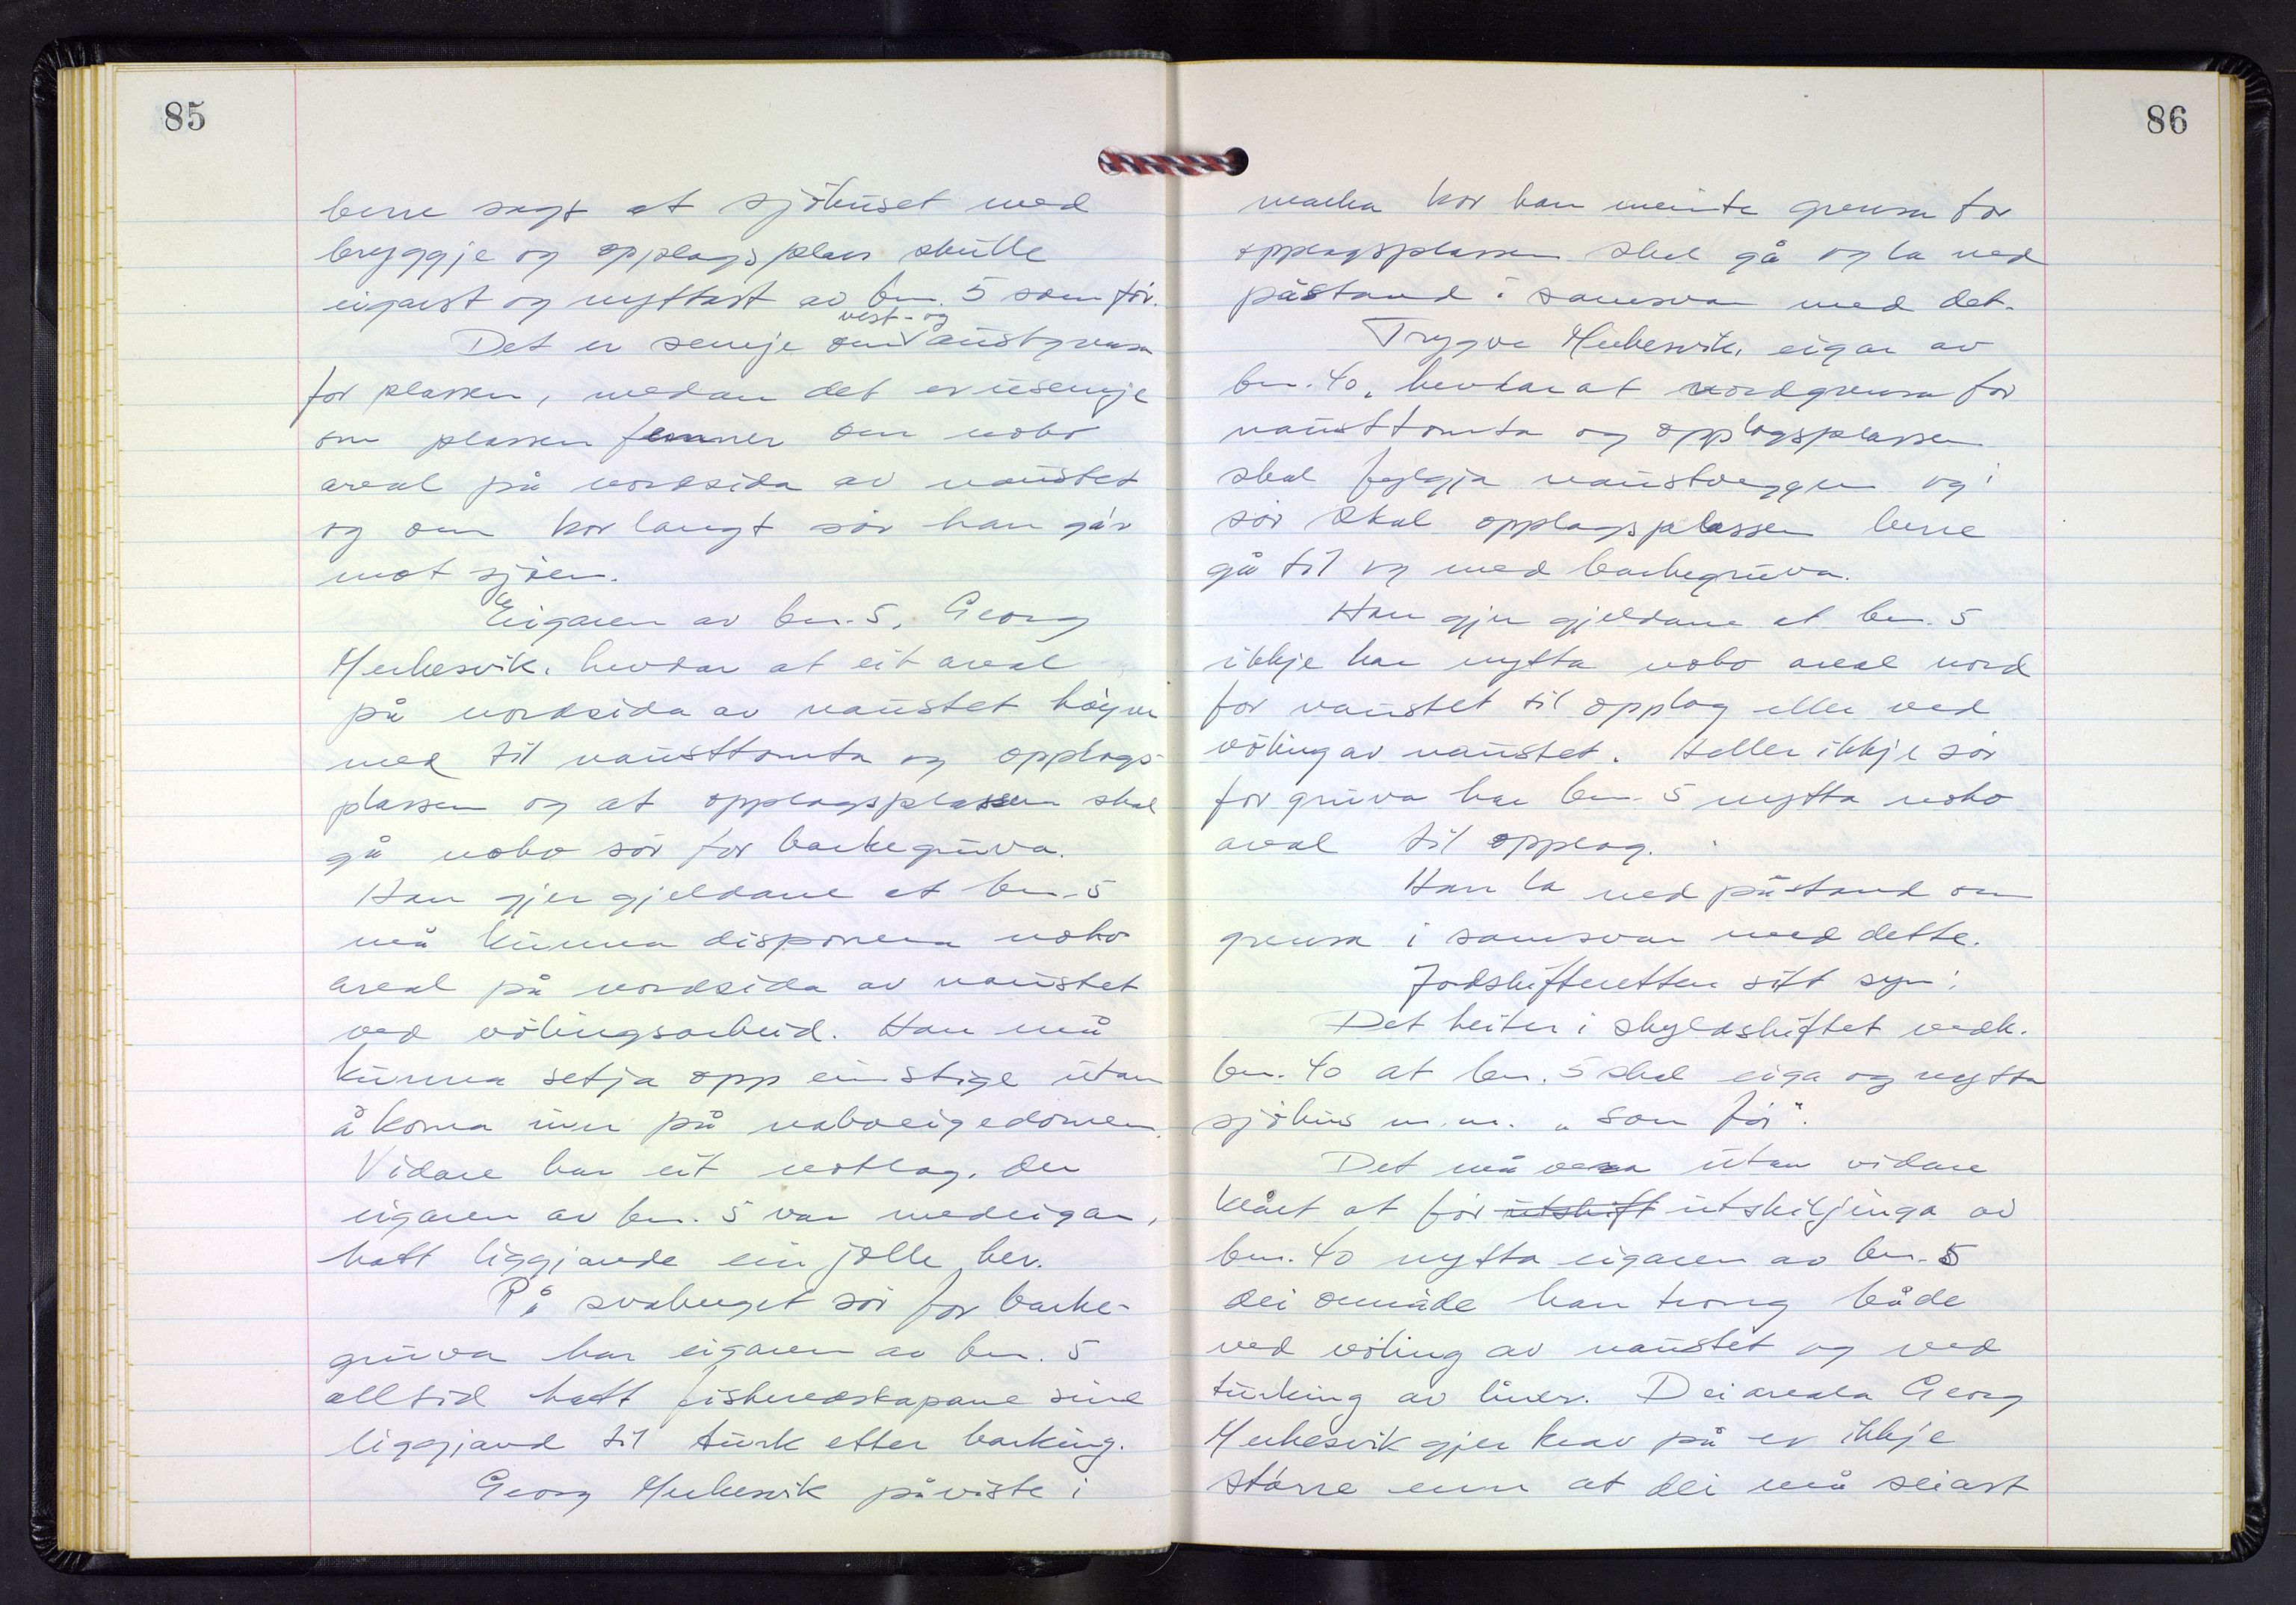 85
berre sagt at sjöhuset med
bryggje og opplagsplass skulle
eigast og nyttast av bn. 5 som för.
vest- og
Det er semje om austgrensa
for plassen, medan det er usemje
om plassen femner om noko
areal på nordsida av naustet
og om kor langt sör han går
mot sjöen.
Eigaren av bn. 5, Georg
Merkesvik, hevdar at eit areal
på nordsida av naustet höyrer
med til nausttomta og opplags-
plassen og at opplagsplassen skal
gå noko sör for barkegruva.
Han gjer gjeldane at bn. 5
må kunna disponera noko
areal på nordsida av naustet
ved völingsarbeid. Han må
kunna setja opp ein stige utan
å koma inn på naboeigedomen.
Vidare har eit notlag, der
eigaren av bn. 5 var medeigar,
hatt liggjande ein jolle her.
På svaberget sör for barke-
gruva har eigaren av bn. 5
alltid hatt fiskereiskapane sine
liggjand til turk etter barking.
Georg Merkesvik påviste i
86
marka kor han meinte grensa for
opplagsplassen skal gå og la ned
påstand i samsvar med det.
Trygve Merkesvik, eigar av
bn. 40, hevdar at nordgrensa for
nausttomta og opplagsplassen
skal fylgja naustveggen og i
sör skal opplagsplassen berre
gå til og med barkegruva.
Han gjer gjeldane at bn. 5
ikkje har nytta noko areal nord
for naustet til opplag eller ved
völing av naustet. Heller ikkje sör
for gruva har bn. 5 nytta noko
areal til opplag.
Han la ned påstand om
grensa i samsvar med dette.
Jordskifteretten sitt syn:
Det heiter i skyldskiftet vedk.
bn. 40 at bn. 5 skal eiga og nytta
sjöhus m.m. "som för".
Det må vera utan vidare
klårt at för utskift utskiljinga av
bn. 40 nytta eigaren av bn. 5
dei område han trong både
ved völing av naustet og ved
turking av liner. Dei areala Georg
Merkesvik gjer krav på er ikkje
större enn at dei må seiast